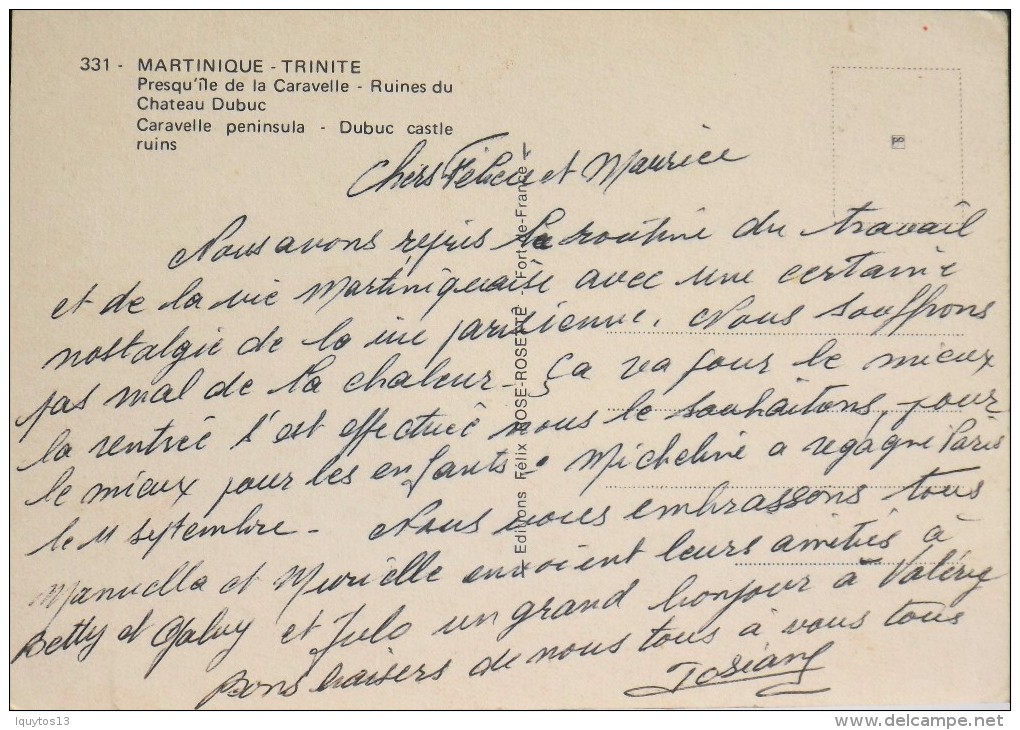 331 - MARTINIQUE - TRINITE
Presqu'île de la Caravelle - Ruines du
Chateau Dubuc
Caravelle peninsula - Dubuc castle
ruins
Chers Félicie et Maurice
Nous avons repris la routine du travail
et de la vie Martiniquaise avec une certaine
nostalgie de la vie parisienne. Nous souffrons
pas mal de la chaleur - ça va pour le mieux
la rentrée s'est effectuée nous le souhaitons, pour
le mieux pour les enfants. Micheline a regagné Paris
le 11 septembre - Nous vous embrassons tous
Manuella et Murielle envoient leurs amitiés à
Betty et et Julo un grand bonjour à Valéry
Bons baisers de nous tous à vous tous
Josiane
Editions Félix ROSE-ROSETTE - Fort-de-France
lquytos13
www.delcampe.net